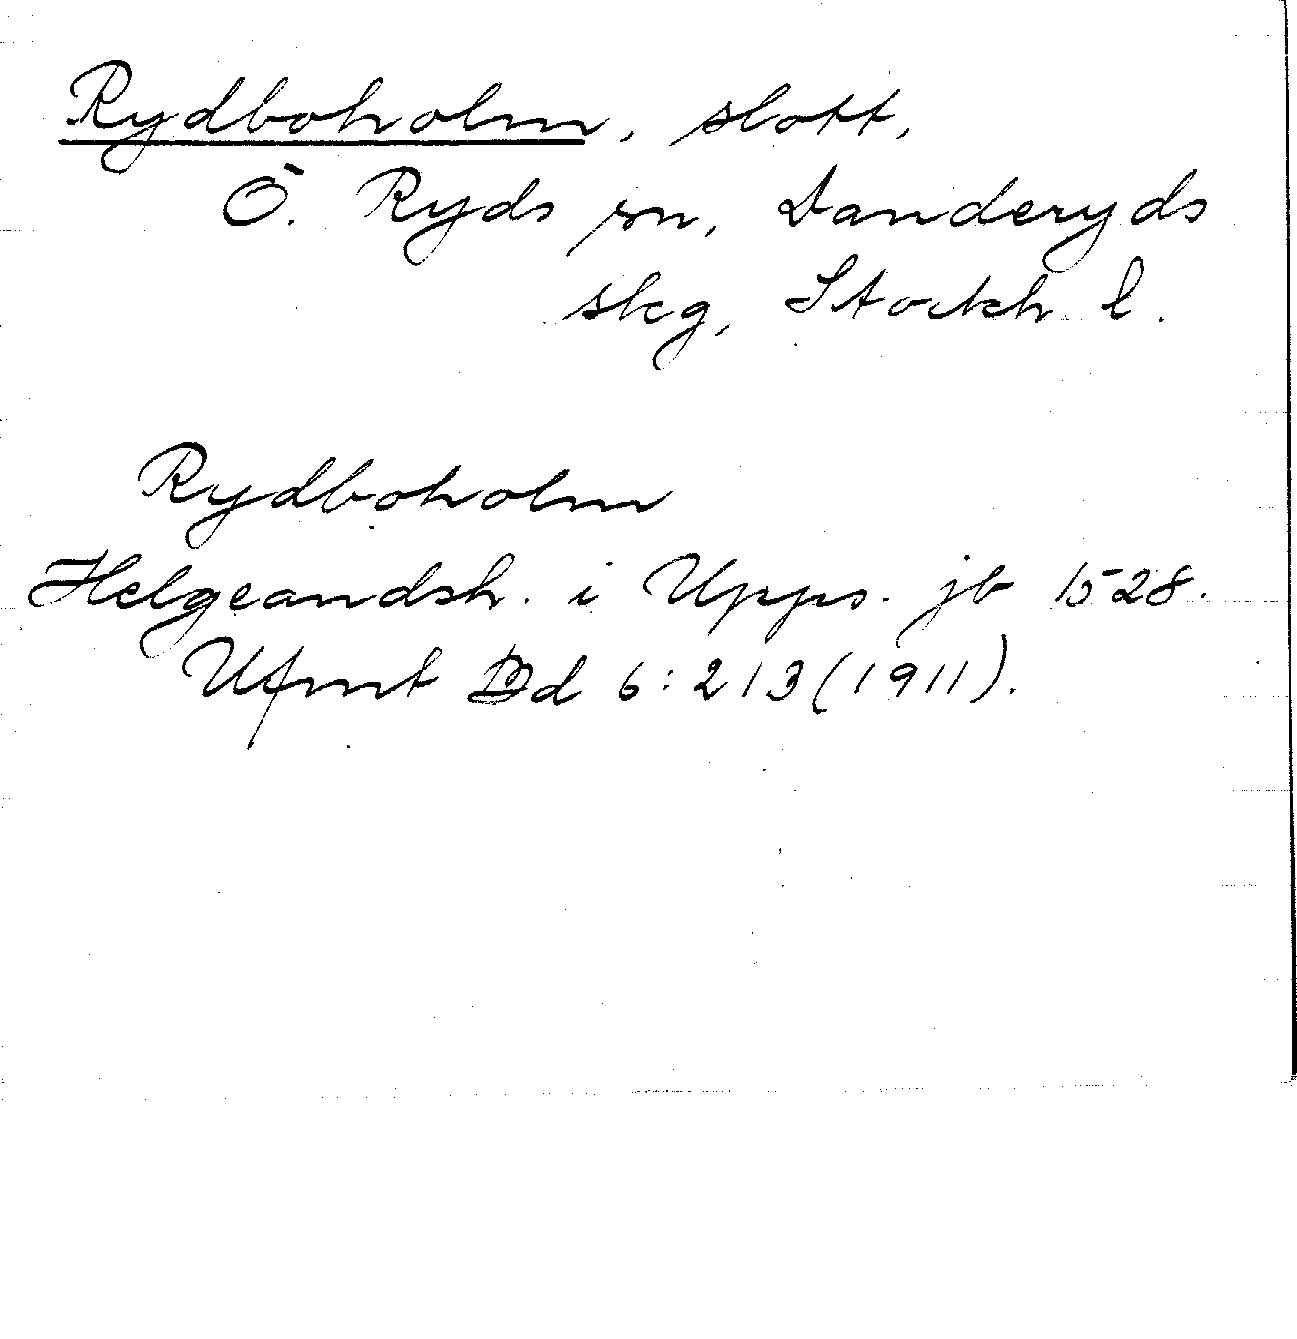 Rydboholm, slott,
Ö. Ryds sn, Danderyds
skg, Stockh l.
Rydboholm
Helgeandsh. i Upps. jb 1528.
Ufmt Bd 6:213 (1911).